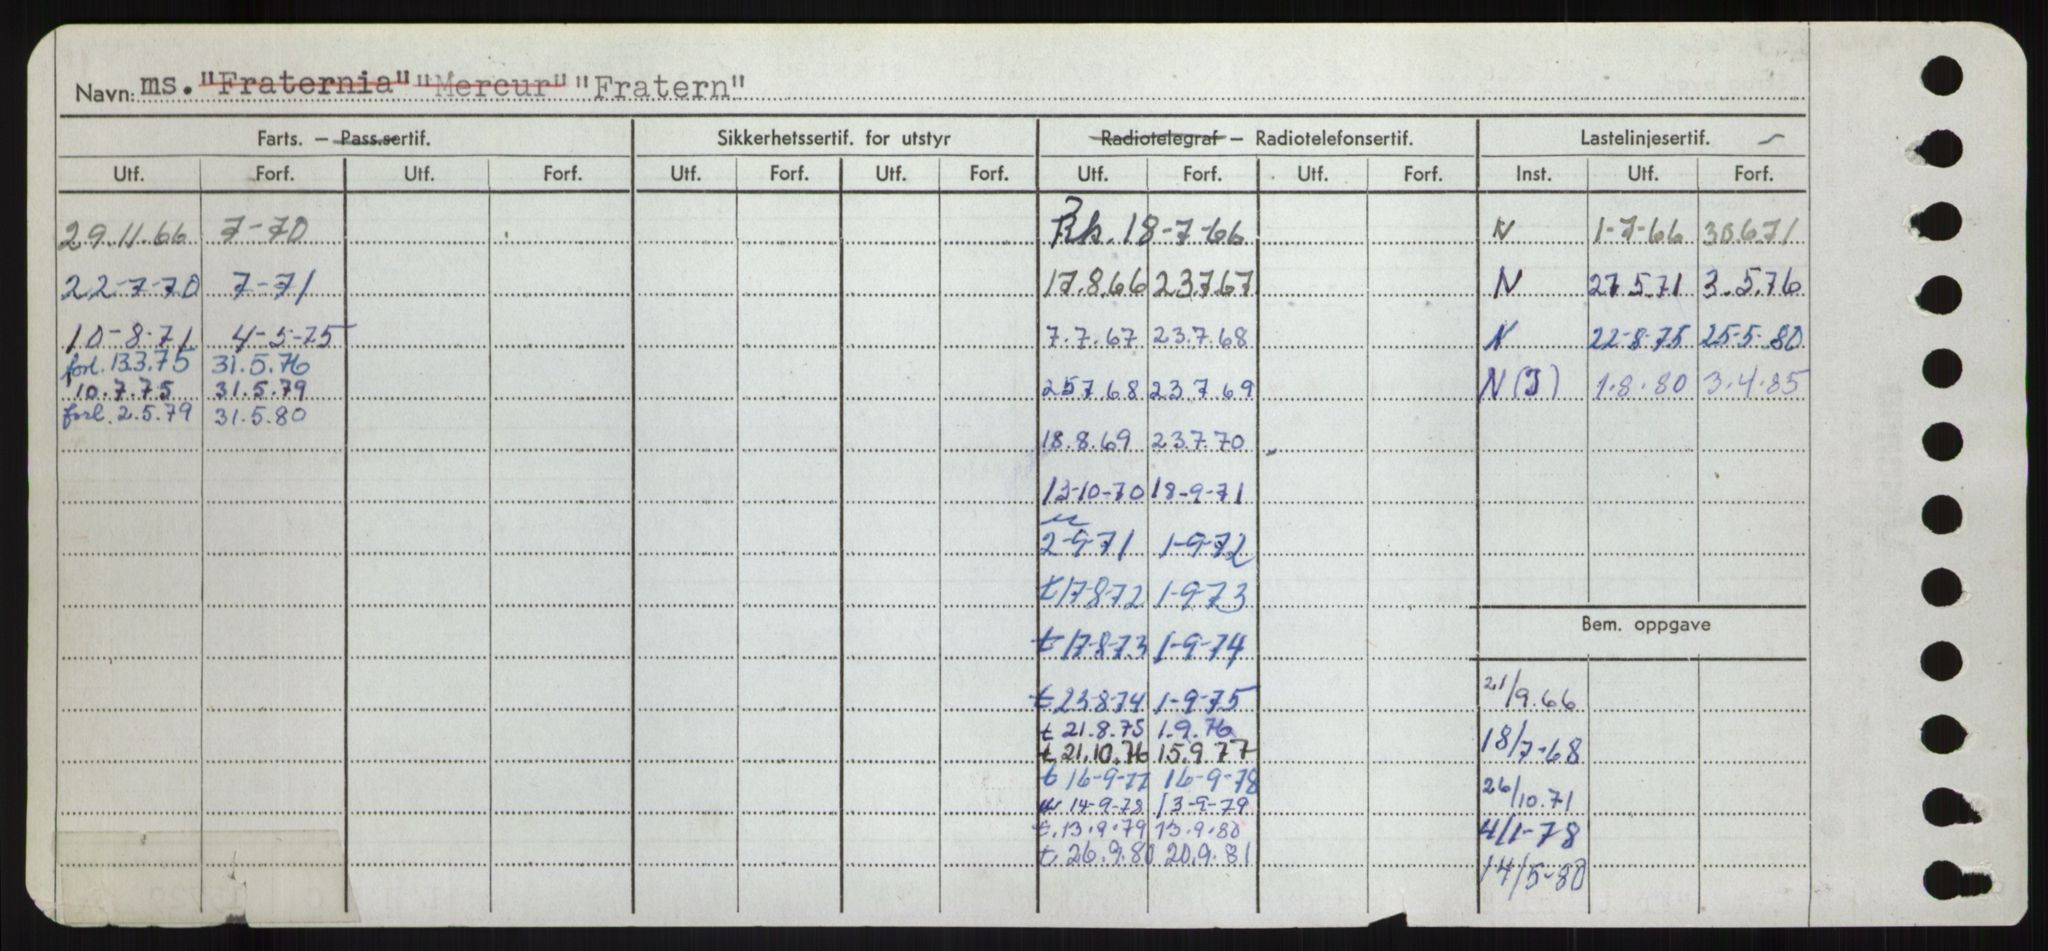 Navn: ms. "Fraternia" "Mercur" "Fratern"
Farts. — Pass.sertif. Sikkerhetssertif. for utstyr Radiotelegraf — Radiotelefonsertif. Lastelinjesertif.
Utf. Forf. Utf. Forf. Utf. Forf. Utf. Forf. Utf. Forf. Utf. Forf. Inst. Utf. Forf.
29.11.66 7-70 Rk. 18-7-66 N 1-7-66 30.6.71
22-7-70 7-71 17.8.66 23.7.67 N 27.5.71 3.5.76
10-8-71 4-5-75 7.7.67 23.7.68 N 22-8-75 25-5-80
forl. 13.3.75 31.5.76
10.7.75 31.5.79 25.7.68 23.7.69 N(J) 1.8.80 3.4.85
forl. 2.5.79 31.5.80
18.8.69 23.7.70
13-10-70 18-9-71
2-9-71 1-9-72
t 17-8-72 1-9-73
Bem. oppgave
t 17-8-73 1-9-74
t 23-8-74 1-9-75 21/9.66
t 21.8.75 1.9.76
t 21.10.76 15.9.77 18/7-68
t 16-9-77 16-9-78
14-9-78 13-9-79 26/10.71
t. 13.9.79 13.9.80 4/1-78
t 26.9.80 20.9.81 14/5-80